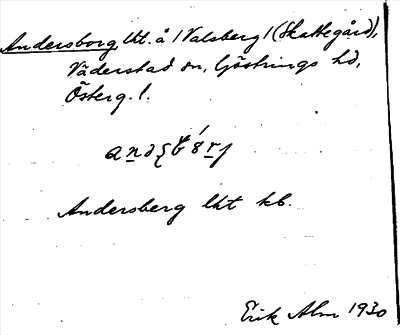 Andersborg, lht. å 1 Valsberg 1 (Skattegård),
Väderstad sn, Göstrings hd,
Österg. l.
Andersberg lht kb.
Erik Alm 1930